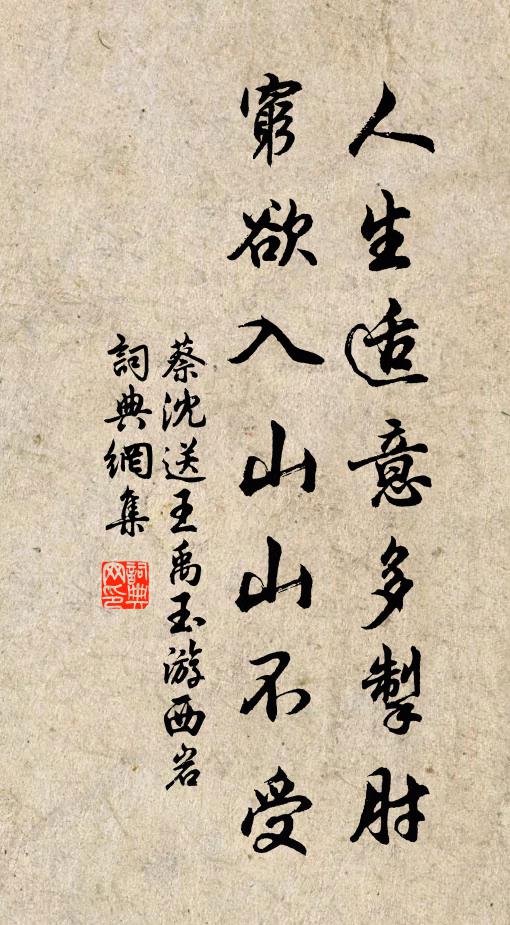 人生适意多掣肘
窮欲入山山不受
蔡沈送王禹玉游西岩
詞典網集
詞典网印